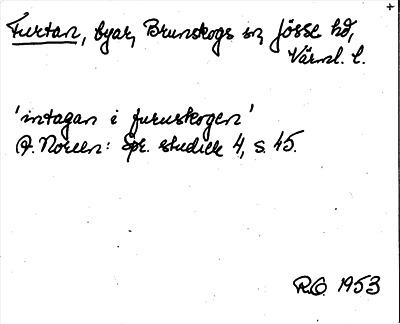 Furtan, byar, Brunskogs sn, Jösse hd,
Värml. l.
'intagan i furuskogen'
A. Noreen: Spr. studier 4, s. 45.
R.O. 1953